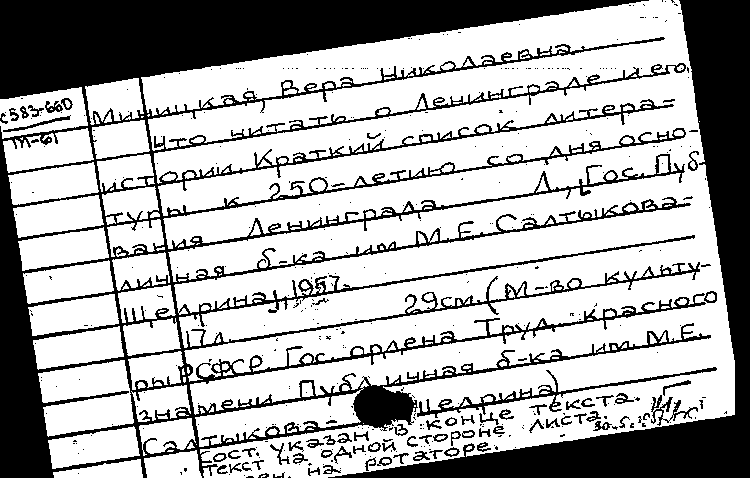 С583-660
М-61
Миницкая, Вера Николаевна.
Что читать о Ленинграде и его
истории. Краткий список литера=
туры к 250=летию со дня осно-
вания Ленинграда. Л., [Гос. Пуб-
личная б-ка им М.Е. Салтыкова=
Щедрина], 1957.
17 л. 29см. (М-во культу-
ры РСФСР. Гос. ордена Труд. Красного
знамени Публичная б-ка им. М.Е.
Салтыкова= Щедрина)
Сост. указан в конце текста.
Текст на одной стороне листа.
на ротаторе.